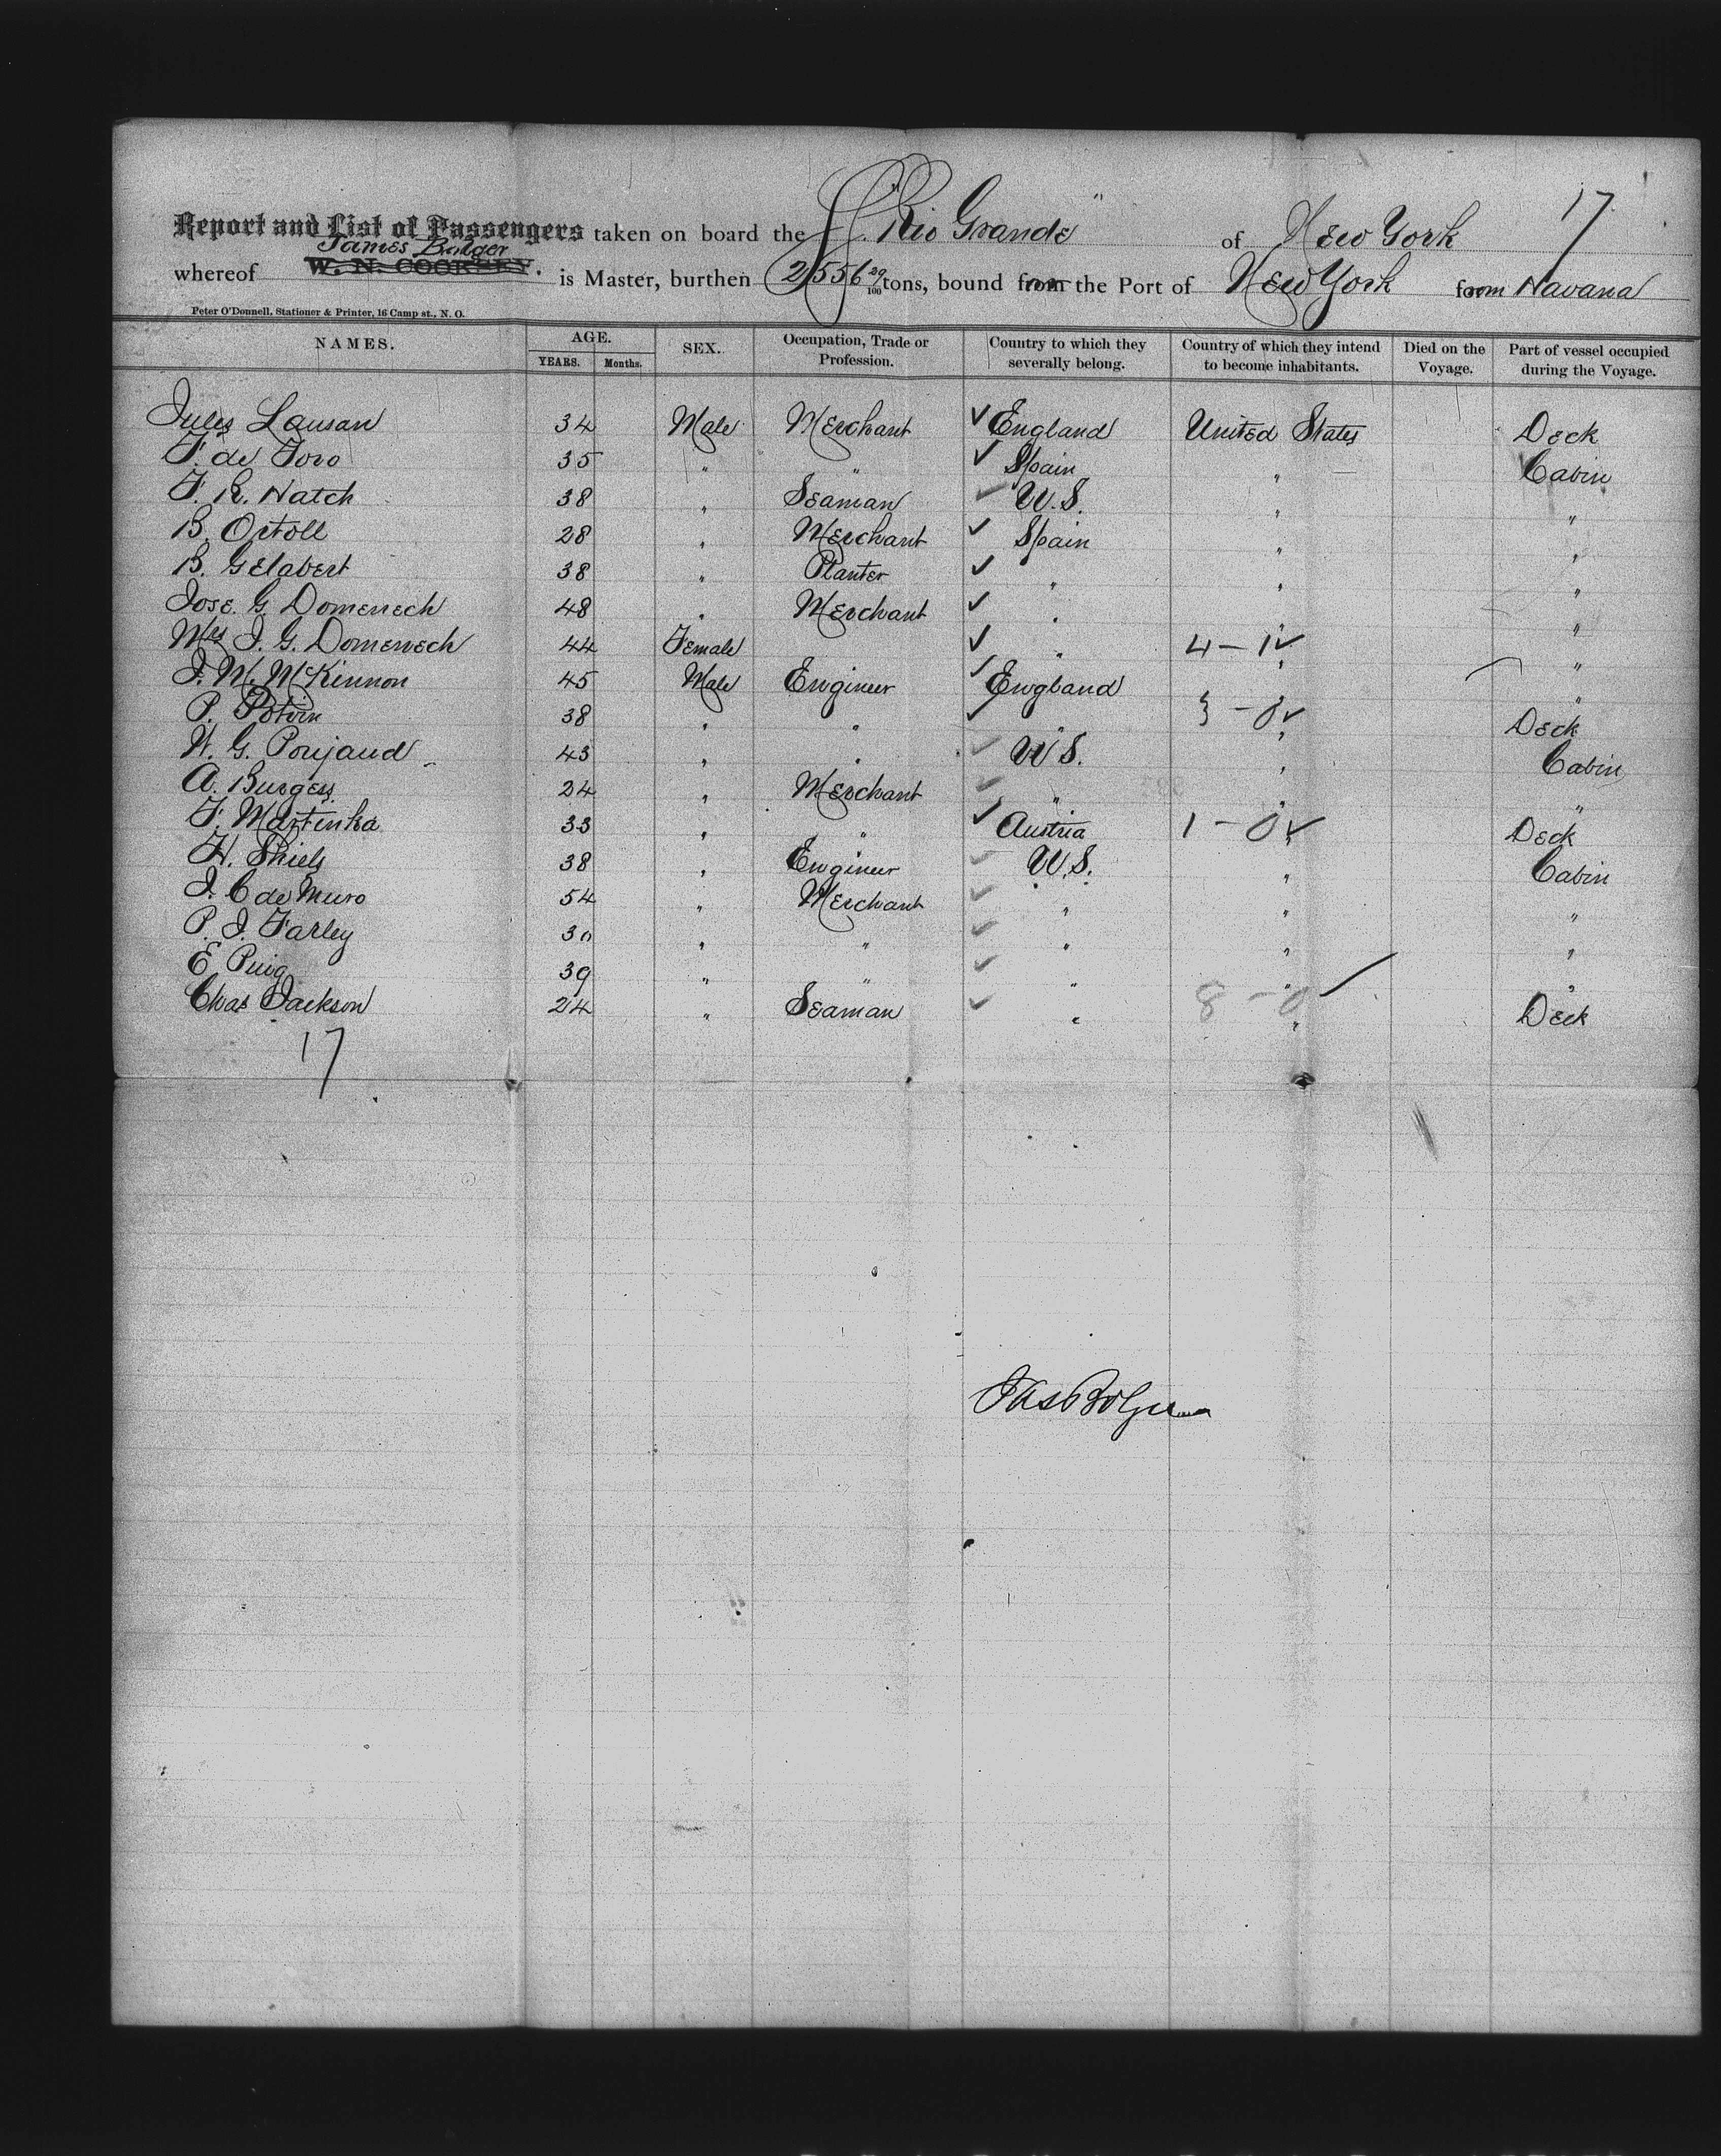 17
Report and List of Passengers taken on board the "Rio Grande" of New York
James Bolger
whereof W. N. COOKSEY. is Master, burthen 2556 29/100 tons, bound from the Port of New York from Havana
Peter O'Donnell, Stationer & Printer, 16 Camp st., N. O.
NAMES. AGE. YEARS. Months. SEX. Occupation, Trade or Profession. Country to which they severally belong. Country of which they intend to become inhabitants. Died on the Voyage. Part of vessel occupied during the Voyage.
Jules Lausan 34 Male Merchant ✓ England United States Deck
F. de Toro 35 " " ✓ Spain " Cabin
F. R. Hatch 38 " Seaman ✓ U.S. " "
B. Ortoll 28 " Merchant ✓ Spain " "
B. Gelabert 38 " Planter ✓ " " "
Jose. G. Domenech 48 " Merchant ✓ " " "
Mrs J. G. Domenech 44 Female ✓ " 4-1 ✓ " "
J. M. McKinnon 45 Male Engineer ✓ England " "
P. Potvin 38 " " ✓ " 3-0 ✓ " Deck
W. G. Poujaud 43 " " ✓ U S. " Cabin
A. Burgess 24 " Merchant ✓ " " "
F. Martinka 33 " " ✓ Austria 1-0 ✓ " Deck
H. Shiels 38 " Engineer ✓ U.S. " Cabin
J. C de Muro 54 " Merchant ✓ " " "
P. J. Farley 30 " " ✓ " " "
E Puig 39 " " ✓ " " "
Chas Jackson 24 " Seaman ✓ " 8-0 ✓ " Deck
17
Jas Bolger